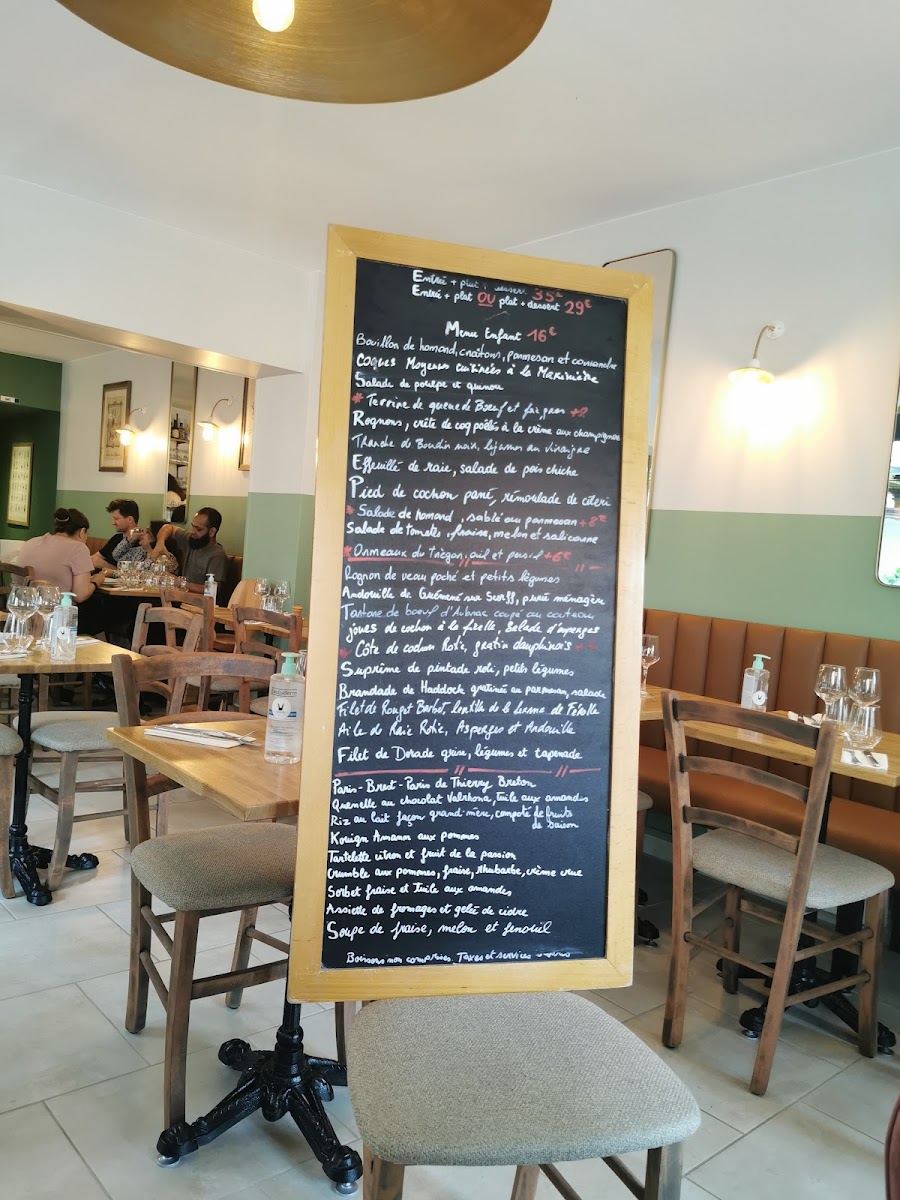 Entrée + plat + dessert 35€
Entrée + plat OU plat + dessert 29€
Menu Enfant 16€
Bouillon de homard, croûtons, parmesan et coriandre
Coques Moyennes cuisinées à la Maximiette
Salade de poulpe et quinoa
* Terrine de queue de Bœuf et foie gras +2
Rognons, crête de coq poêlés à la crème aux champignons
Tranche de Boudin noir, légumes au vinaigre
Effeuillé de raie, salade de pois chiche
Pied de cochon pané, rémoulade de céleri
* Salade de homard, sablé au parmesan +8€
Salade de tomates, fraise, melon et salicorne
* Ormeaux du Trégor, ail et persil +6€
Rognon de veau poché et petits légumes
Andouille de Guémené sur Scorff, purée ménagère
Tartare de bœuf d'Aubrac coupé au couteau
joues de cochon à la ficelle, Salade d'asperges
* Côte de cochon Rotie, gratin dauphinois
Suprême de pintade roti, petits légumes
Brandade de Haddock gratinée au parmesan, salade
Filet de Rouget Barbet, lentille de la
Aile de Raie Rotie, Asperges et Andouille
Filet de Dorade grise, légumes et tapenade
Paris-Brest-Paris de Thierry Breton
Quenelle au chocolat Valrhona, Tuile aux amandes
Riz au lait façon grand-mère, compote de fruits
de saison
Kouign Amann aux pommes
Tartelette citron et fruit de la passion
Crumble aux pommes, fraise, rhubarbe, crème crue
Sorbet fraise et Tuile aux amandes
Assiette de fromages et gelée de cidre
Soupe de fraise, melon et fenouil
Boissons non comprises. Taxes et services